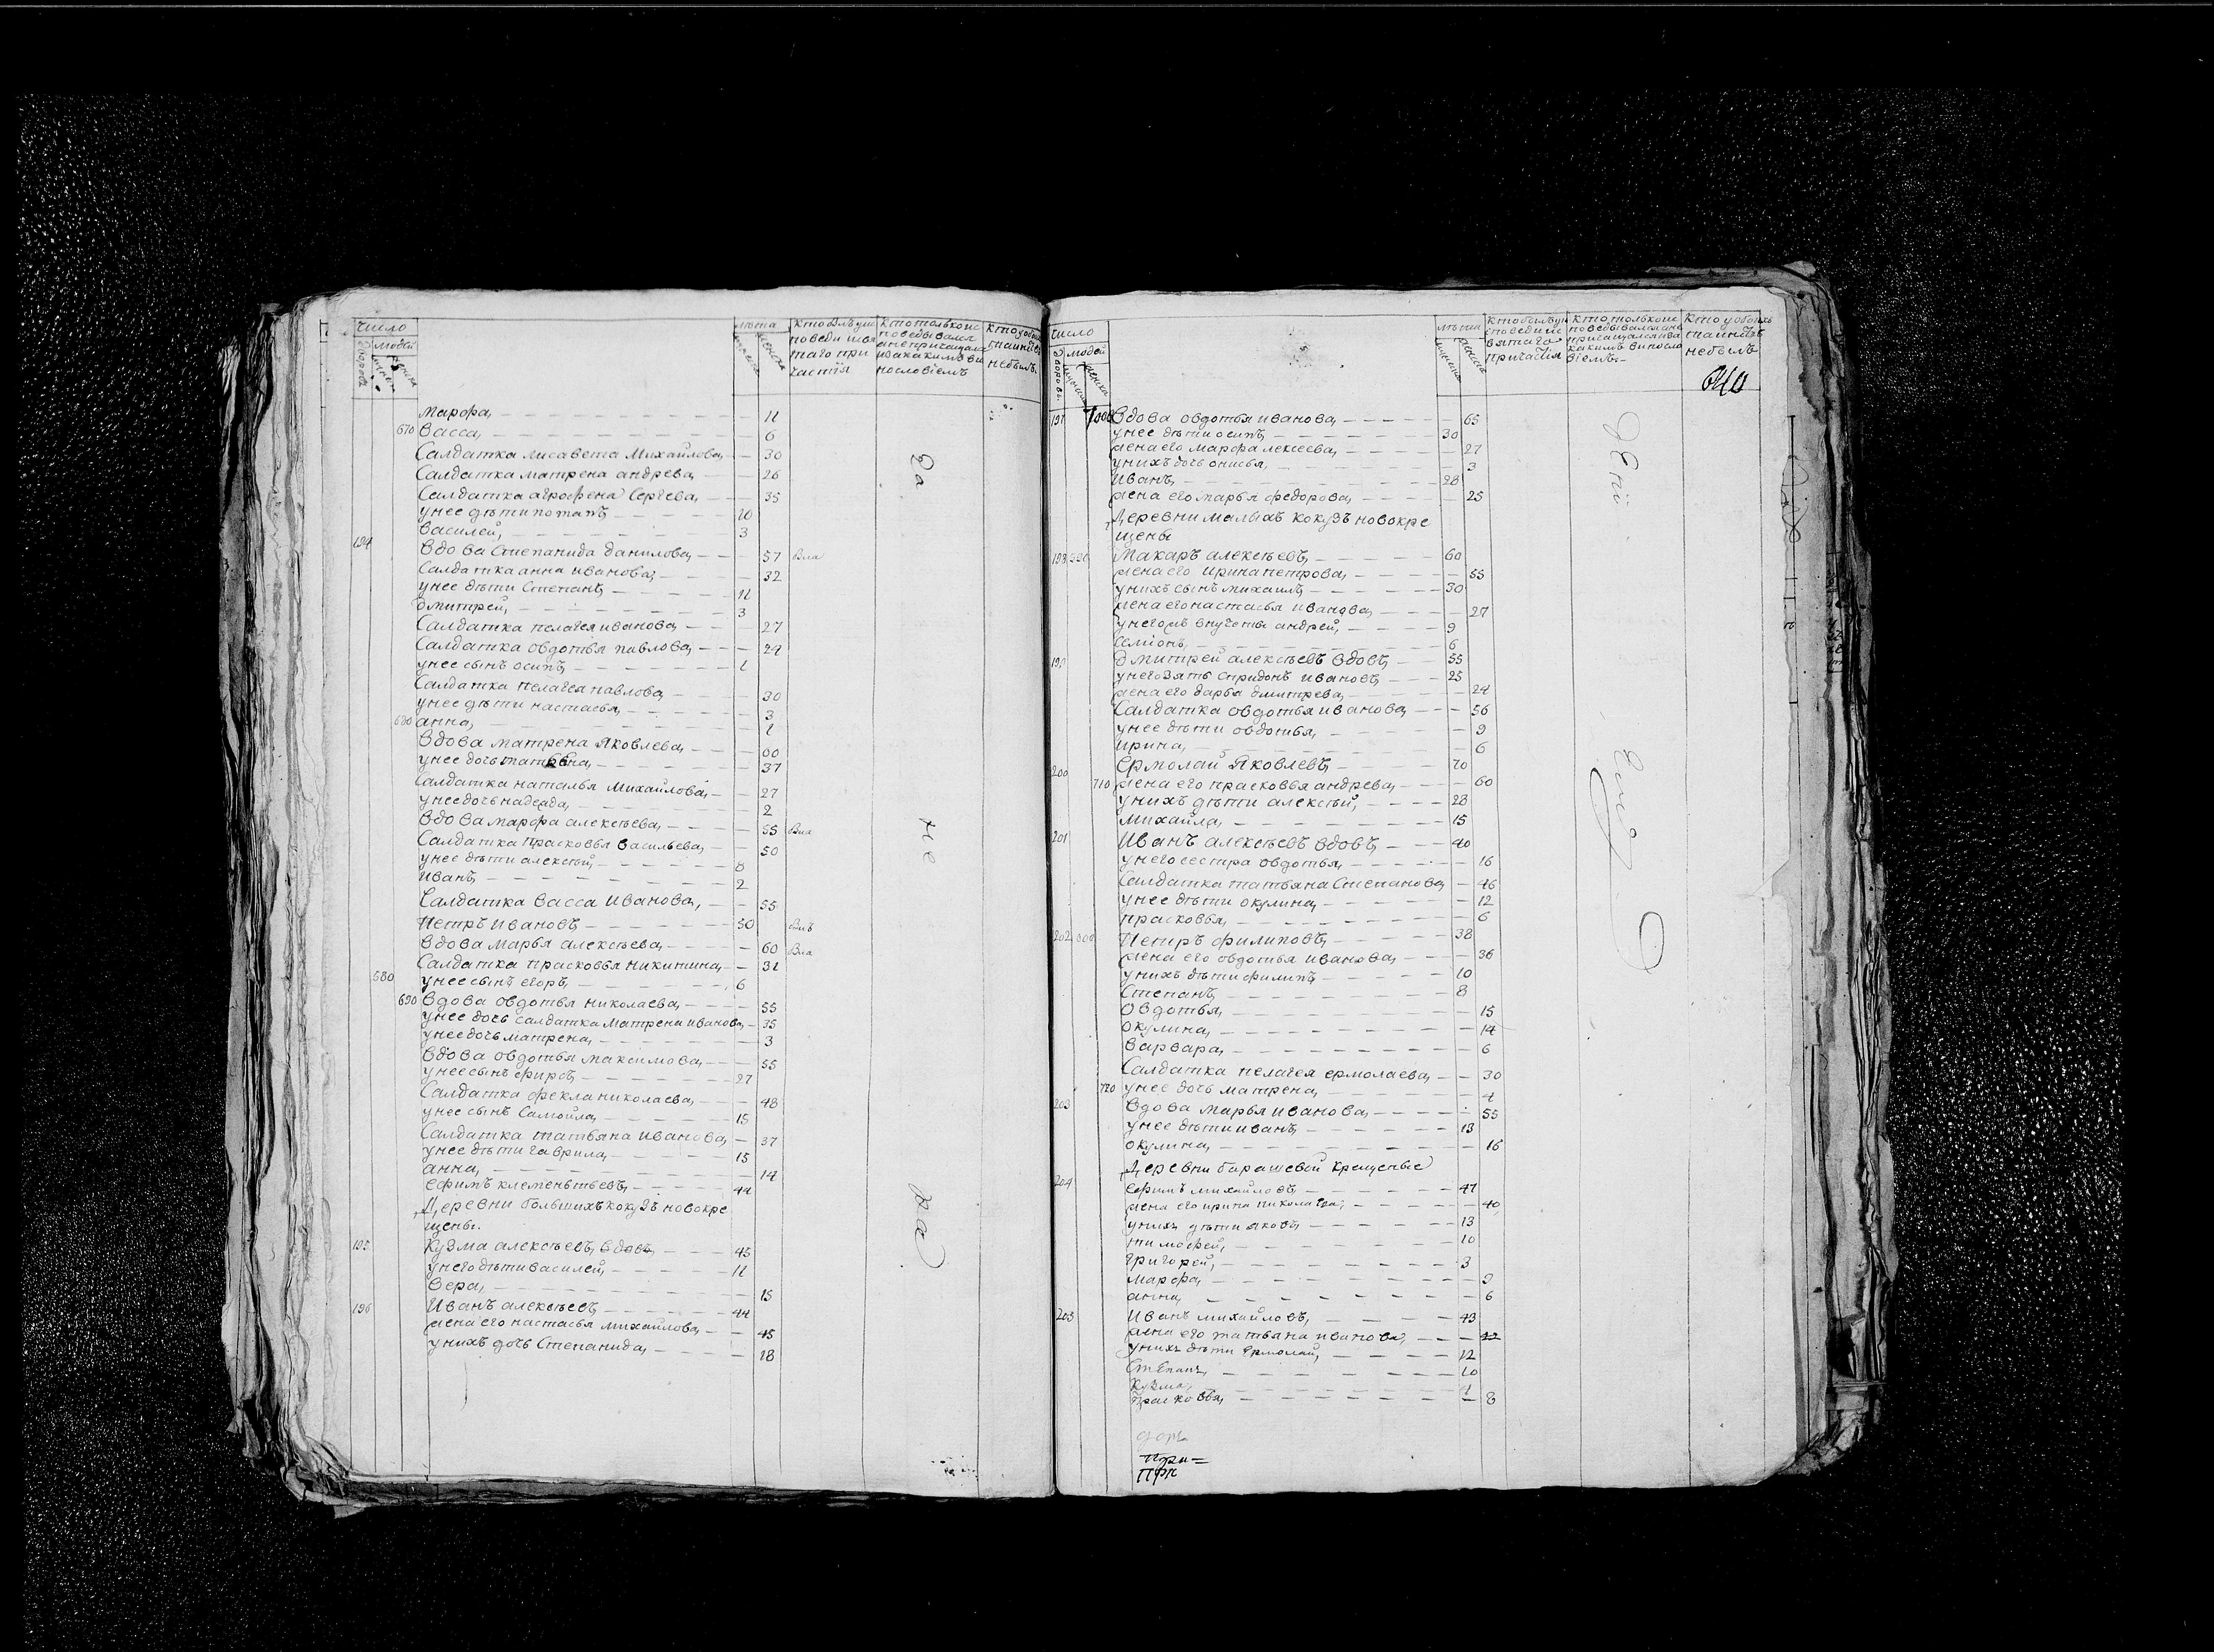 число
людей
лѣта
марфа 11
670 васса 6
Салдатка лисавета Михайлова 30
Салдатка матрена андрева 26
Салдатка агрофена Сергева 35
унее дѣти потапъ 10
василей 3
194 вдова Степанида данилова 57 Бла
Салдатка анна иванова 32
унее дѣти Степанъ 11
дмитрей 3
Салдатка пелагея иванова 27
Салдатка овдотья павлова 24
унее сынъ осипъ 1
Салдатка пелагея павлова 30
унее дѣти настасья 3
680 анна 1
вдова матрена Яковлева 60
унее дочь 37
Салдатка наталья Михайлова 27
унее дочь надежда 2
вдова марфа алексѣева 55 Бла
Салдатка Прасковья васильева 50
унее дѣти алексѣй 8
иванъ 2
Салдатка васса иванова 55
Петръ ивановъ 50
вдова Марья алексѣева 60 Бла
Салдатка прасковья никитина 31
580 унее сынъ егоръ 6
690 вдова овдотья николаева 55
унее дочь салдатка Матрена иванова 35
унее дочь матрена 3
вдова овдотья максимова 55
унее сынъ фирсъ 27
Салдатка фекла николаева 48
унее сынъ Самойла 15
Салдатка татьяна иванова 37
унее дѣти гаврила 15
анна 14
ефимъ клементьевъ 44
Деревни большихъ кокузъ новокре
щены
195 Кузма алексѣевъ вдовъ 45
унего дѣти василей 11
вера 15
196 Иванъ алексѣевъ 44
жена его настасья михайлова 45
унихъ дочь Степанида 18
число
людей
лѣта
640
197 700 вдова овдотья иванова 65
унее дѣти осипъ 30
жена его марфа алексеева 27
унихъ дочь онисья 3
иванъ 28
жена его марья федорова 25
Деревни малыхъ кокузъ новокре
щены
198 590 Макаръ алексѣевъ 60
жена его ирина петрова 55
унихъ сынъ михаилъ 30
жена его настасья иванова 27
внучеты андрей 9
Семионъ 6
199 Дмитрей алексѣевъ вдовъ 55
унего зять спридонъ ивановъ 25
жена его дарья дмитрева 24
Салдатка овдотья иванова 56
унее дѣти овдотья 9
ирина 6
200 Ермолай Яковлевъ 70
710 жена его прасковья андрева 60
унихъ дѣти алексѣй 28
михайла 15
201 Иванъ алексѣевъ вдовъ 40
унего сестра овдотья 16
Салдатка татьяна Степанова 46
унее дѣти окулина 12
прасковья 6
202 600 Петръ филиповъ 38
жена его овдотья иванова 36
унихъ дѣти филипъ 10
Степанъ 8
овдотья 15
окулина 14
варвара 6
Салдатка пелагея ермолаева 30
720 унее дочь матрена 4
203 вдова марья иванова 55
унее дѣти иванъ 13
окулина 16
Деревни барашевой крещеные
204 ефимъ михайловъ 47
жена его ирина николаева 40
унихъ дѣти яковъ 13
тимофей 10
григорей 3
марфа 9
анна 6
205 Иванъ михайловъ 43
жена его татьяна иванова 42
унихъ дѣти Ермолай 12
Степанъ 10
Кузма 1
прасковья 8